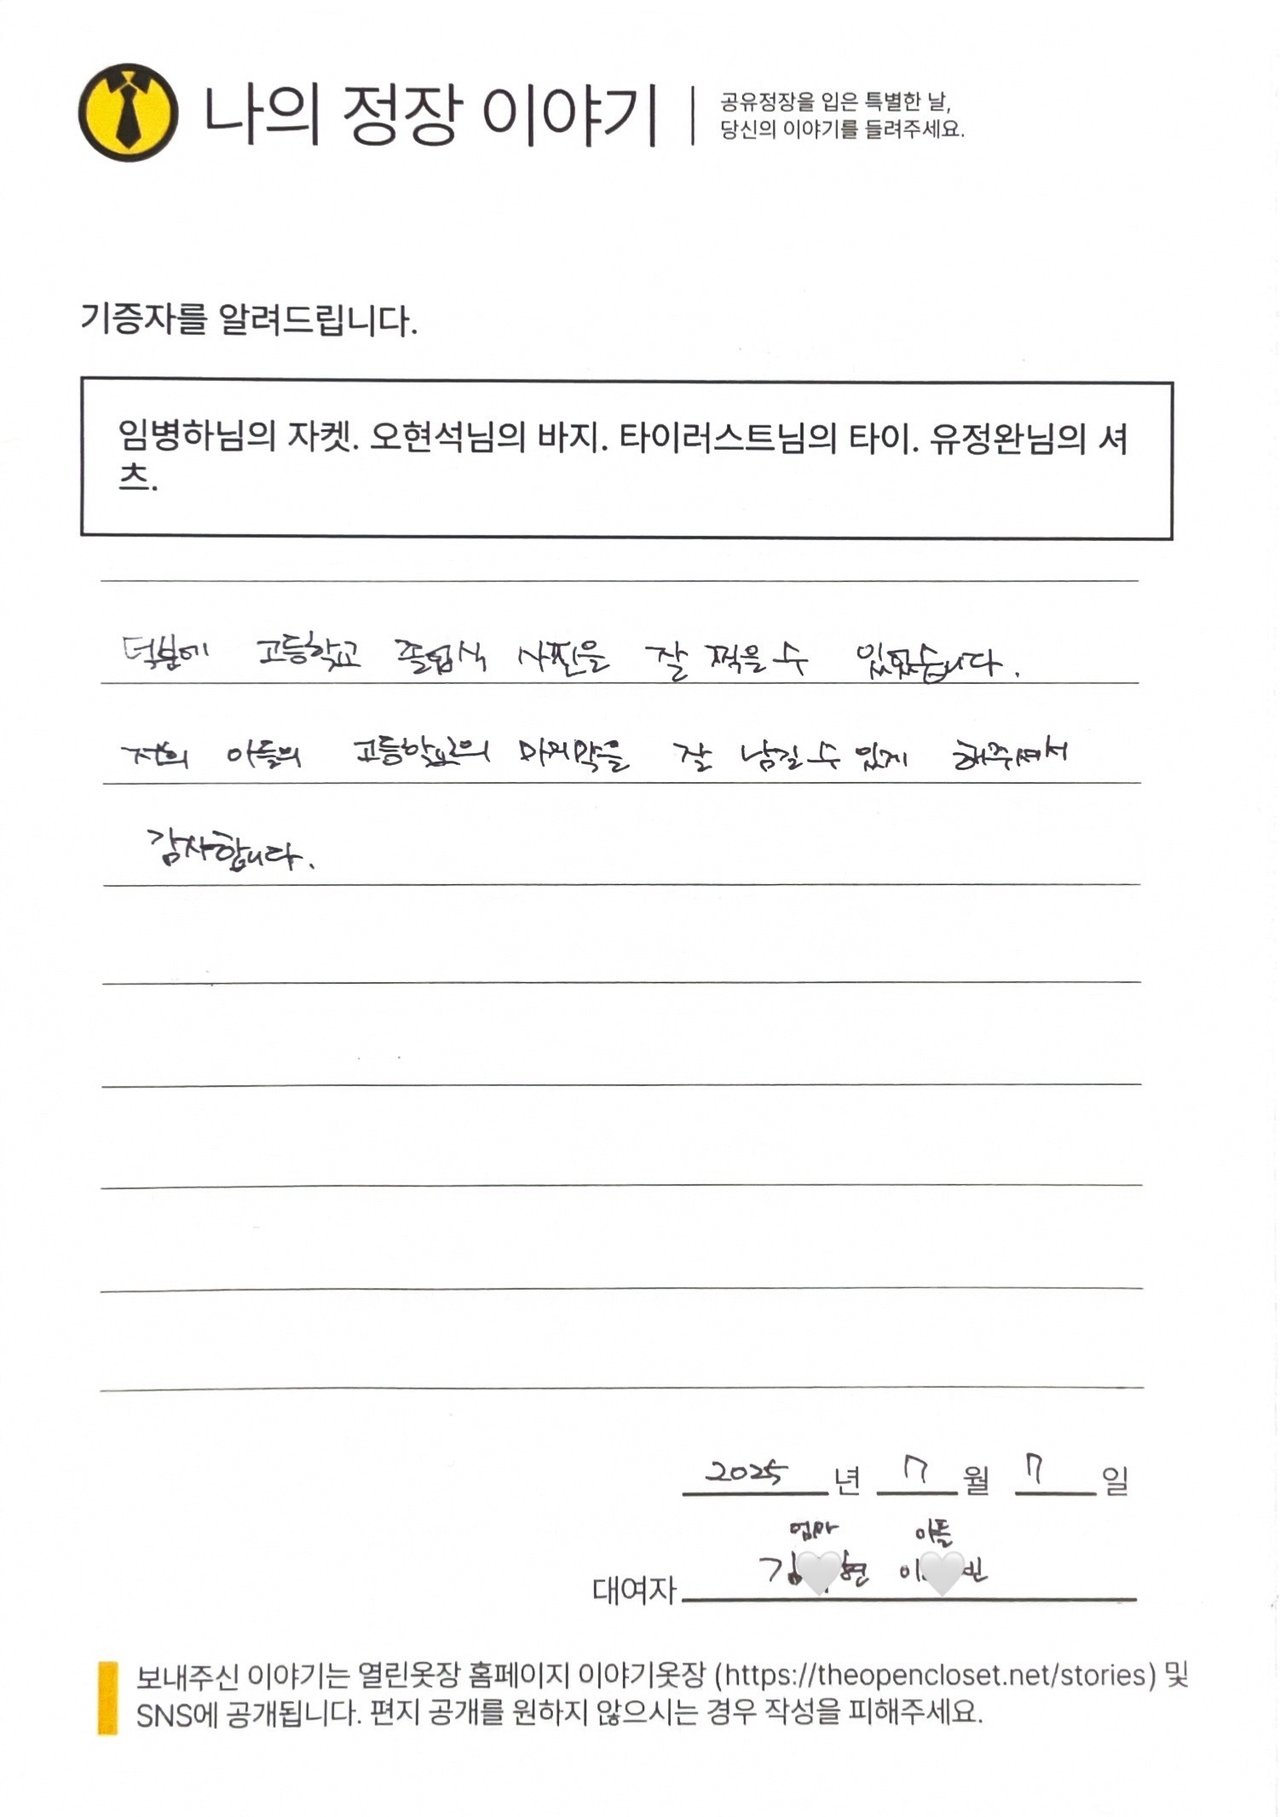 나의 정장 이야기
공유정장을 입은 특별한 날,
당신의 이야기를 들려주세요.
기증자를 알려드립니다.
임병하님의 자켓. 오현석님의 바지. 타이러스트님의 타이. 유정완님의 셔
츠.
덕분에 고등학교 졸업식 사진을 잘 찍을 수 있었습니다.
저희 아들의 고등학교의 마지막을 잘 남길 수 있게 해주셔서
감사합니다.
2025 년 7 월 7 일
엄마 아들
대여자 김 현 이 빈
보내주신 이야기는 열린옷장 홈페이지 이야기옷장 (https://theopencloset.net/stories) 및
SNS에 공개됩니다. 편지 공개를 원하지 않으시는 경우 작성을 피해주세요.